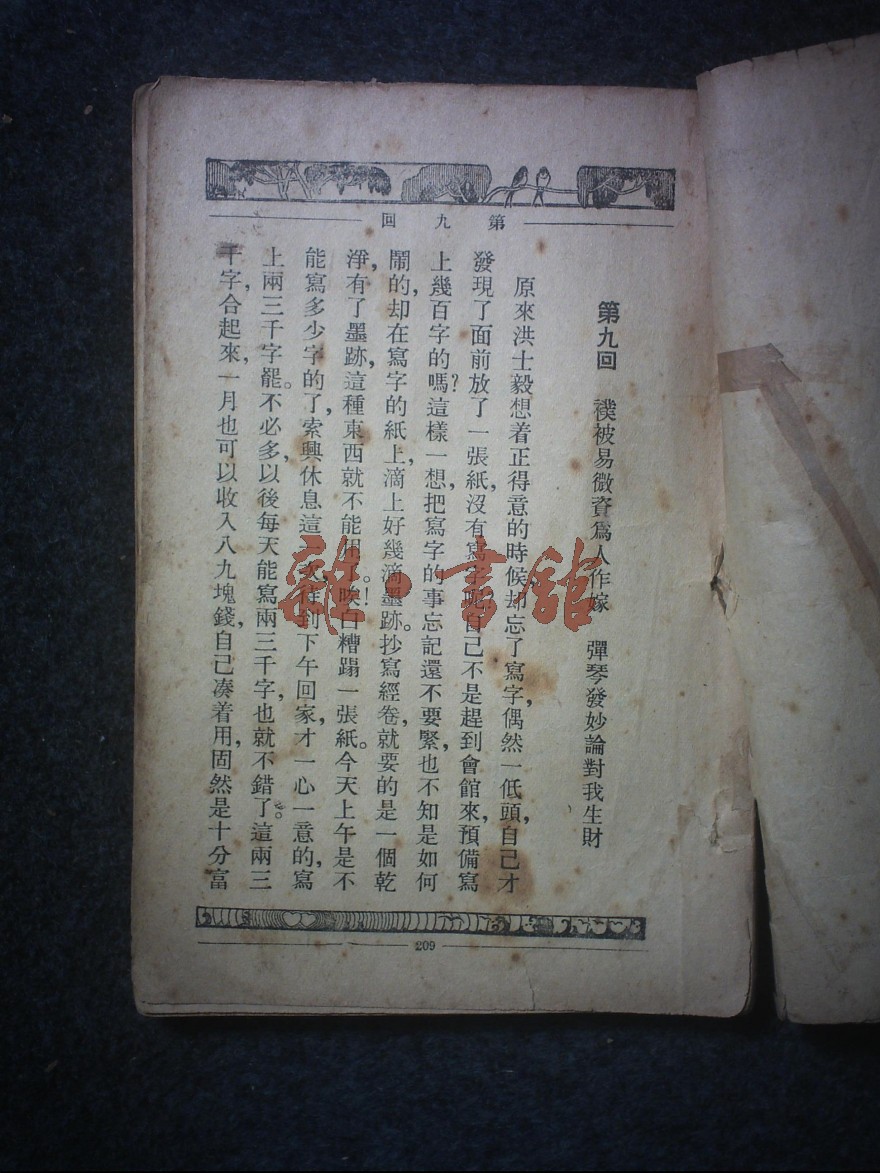 第九回
第九回 襆被易微資爲人作嫁 彈琴發妙論對我生財
原來洪士毅想着正得意的時候,却忘了寫字,偶然一低頭,自己才
發現了面前放了一張紙,沒有寫字呢,自己不是趕到會館來,預備寫
上幾百字的嗎?這樣一想,把寫字的事忘記還不要緊,也不知是如何
鬧的,却在寫字的紙上,滴上好幾滴墨跡。抄寫經卷,就要的是一個乾
淨,有了墨跡,這種東西就不能用了。唉!白糟蹋一張紙。今天上午是不
能寫多少字的了,索興休息這一次,待到下午回家,才一心一意的,寫
上兩三千字罷。不必多,以後每天能寫兩三千字,也就不錯了。這兩三
千字,合起來,一月也可以收入八九塊錢,自己凑着用,固然是十分富
209
雜·書館